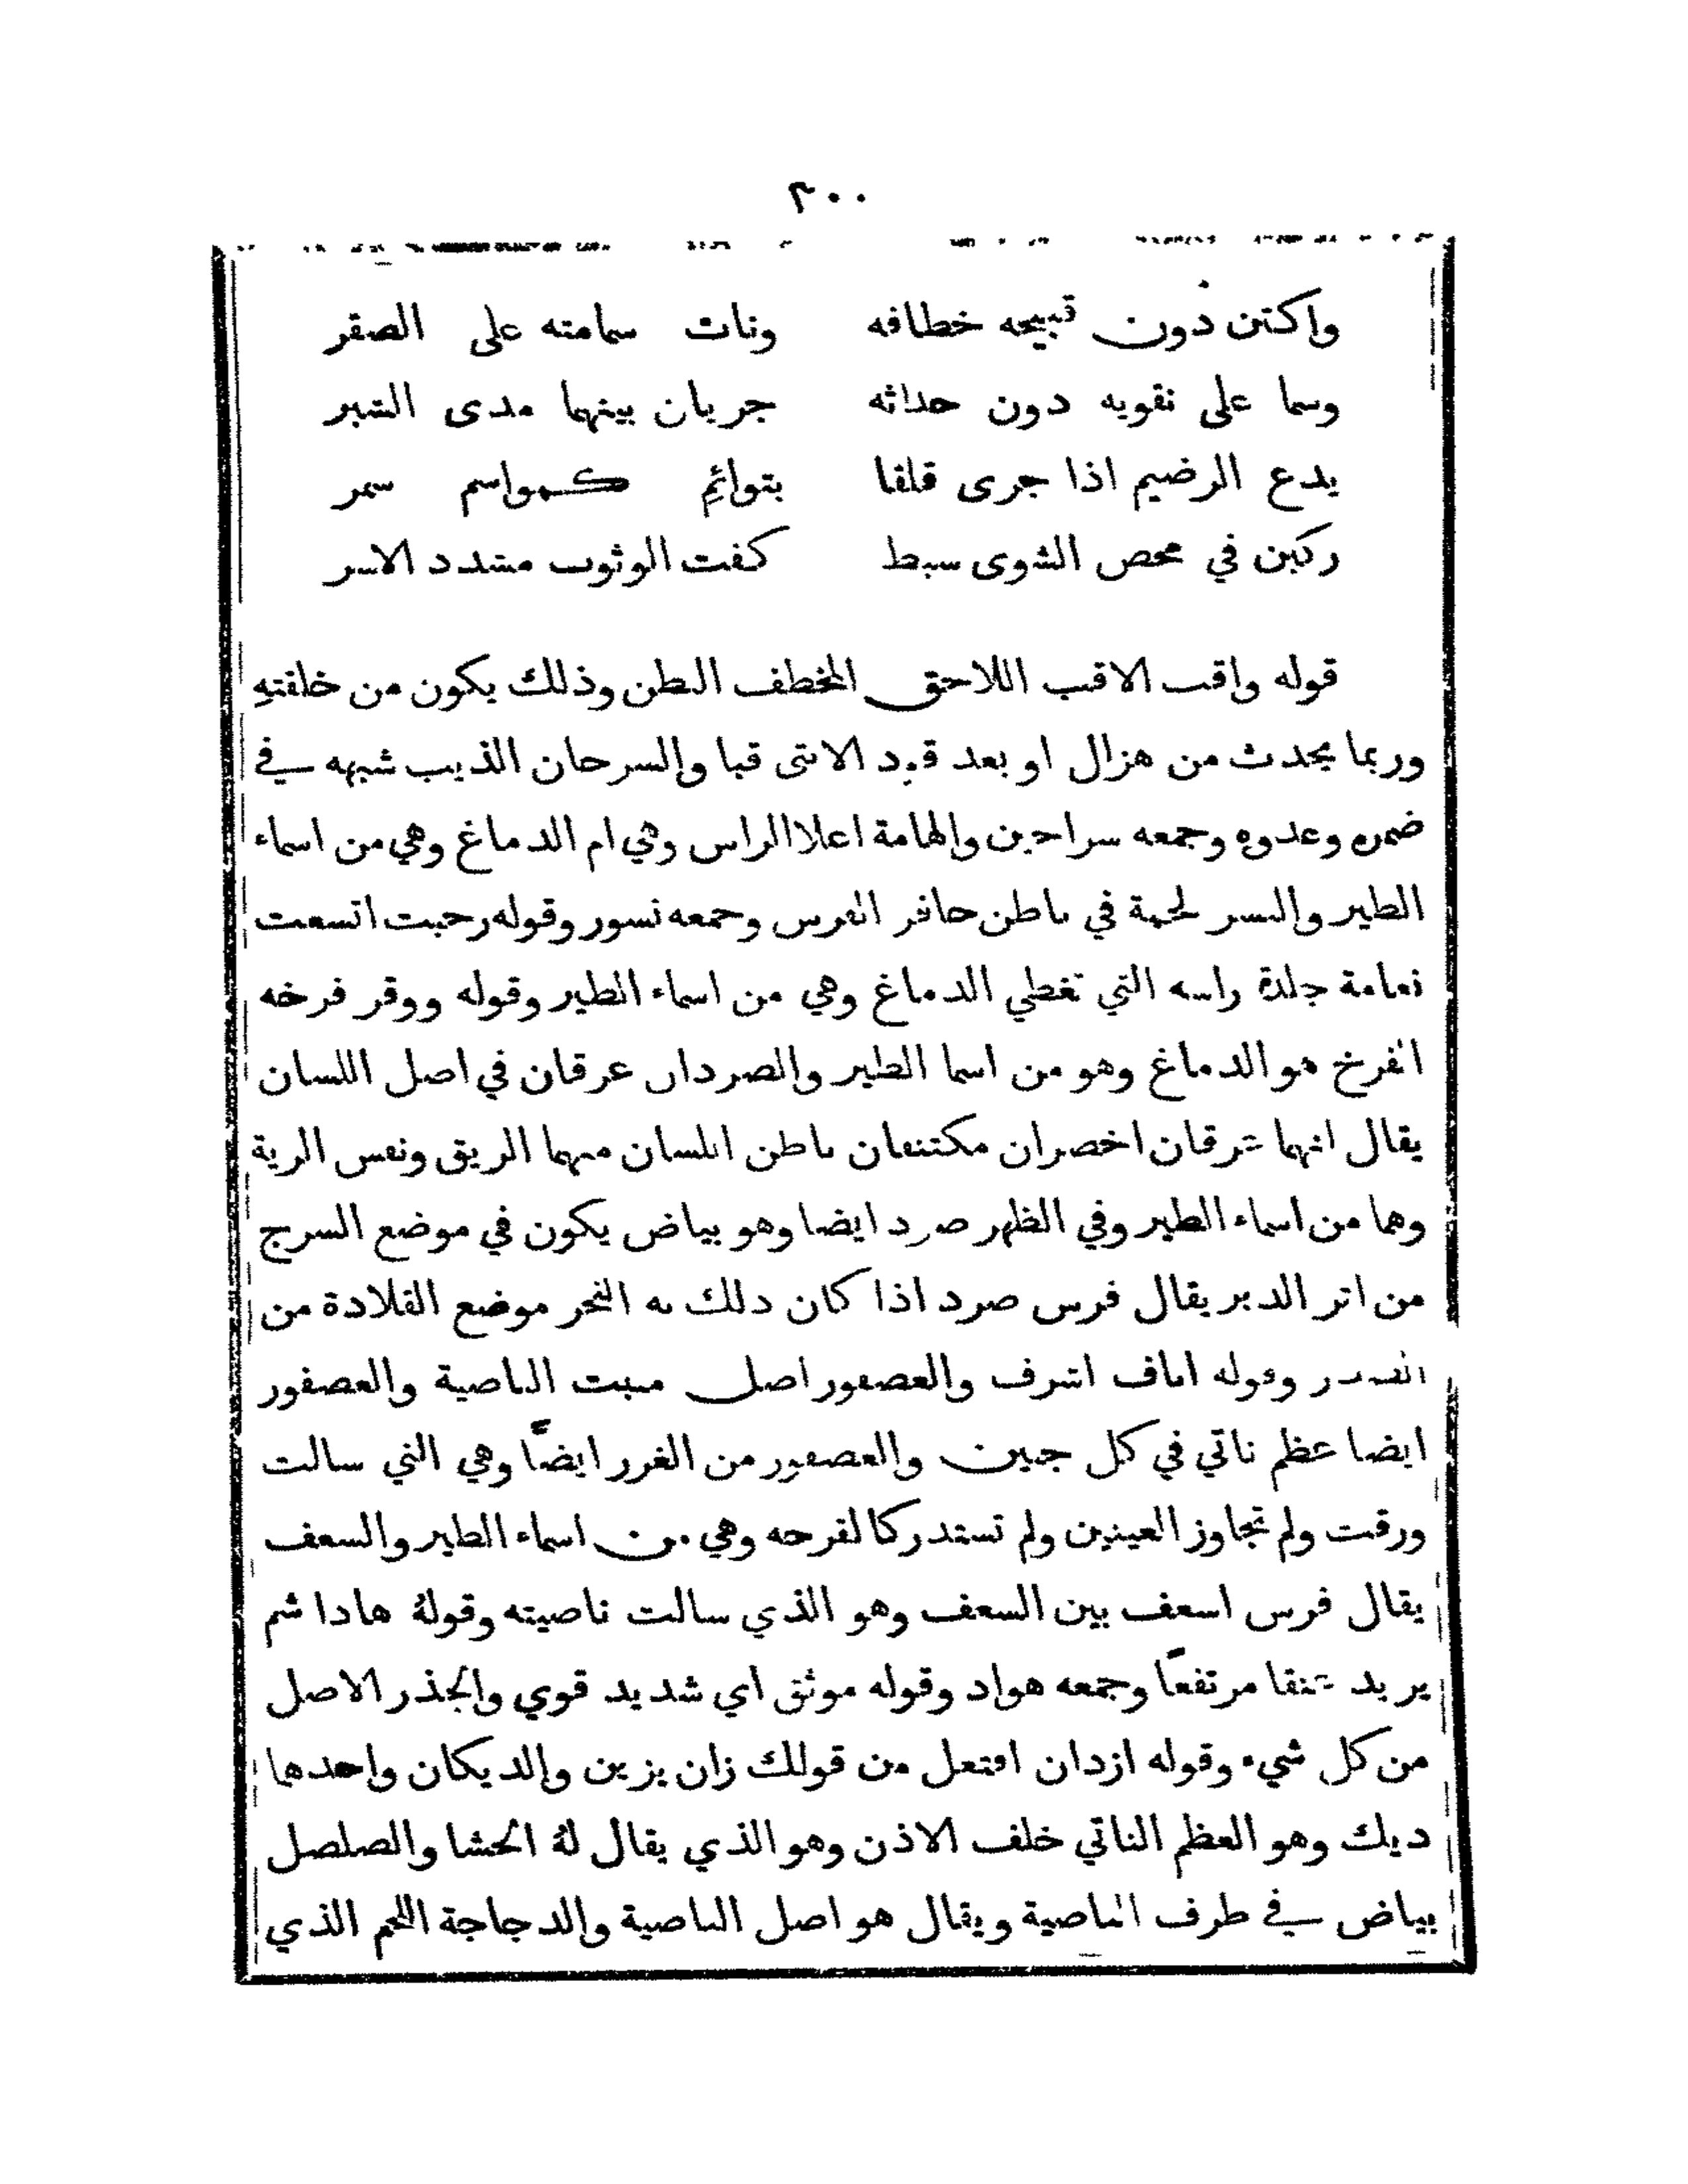 ٢٠٠
واكتن دون قبيحه خطافه ونات سمامته على الصقر
وسما على نقويه دون حداثه جريان بينهما مدى الشبر
يدع الرضيم اذا جرى قلقا بتوائم كمواسم سمر
ركبن في محص الشوى سبط كفت الوثوب مشدد الاسر
قوله واقب الاقب اللاحق المخطف البطن وذلك يكون من خلقته
وربما يحدث من هزال او بعد قود الانثى قبا والسرحان الذيب شبهه في
ضمره وعدوه وجمعه سراحين والهامة اعلا الراس وهي ام الدماغ وهي من اسماء
الطير والنسر لحمة في باطن حافر الفرس وجمعه نسور وقوله رحبت اتسعت
نعامة جلدة راسه التي تغطي الدماغ وهي من اسماء الطير وقوله ووقر فرخه
الفرخ هو الدماغ وهو من اسما الطير والصردان عرقان في اصل اللسان
يقال انهما عرقان اخضران مكتنفان باطن اللسان منهما الريق ونفس الرية
وهما من اسماء الطير وفي الظهر صرد ايضا وهو بياض يكون في موضع السرج
من اثر الدبر يقال فرس صرد اذا كان ذلك به النحر موضع القلادة من
الصدر وقوله اناف اشرف والعصفور اصل منبت الناصية والعصفور
ايضا عظم ناتي في كل جبين والعصفور من الغرر ايضًا وهي التي سالت
ورقت ولم تجاوز العينين ولم تستدر كالقرحه وهي من اسماء الطير والسعف
يقال فرس اسعف بين السعف وهو الذي سالت ناصيته وقولهُ هادا شم
يريد عنقا مرتفعًا وجمعه هواد وقوله موثق اي شديد قوي والجذر الاصل
من كل شيء وقوله ازدان افتعل من قولك زان يزين والديكان واحدهما
ديك وهو العظم الناتي خلف الاذن وهو الذي يقال لهُ الحشا والصلصل
بياض في طرف الناصية ويقال هو اصل الناصية والدجاجة اللحم الذي